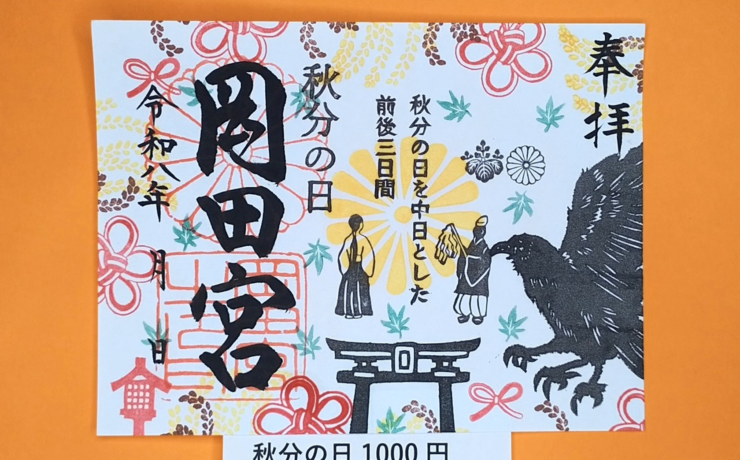 奉拝
秋分の日を中日とした
前後三日間
秋分の日
岡田宮
令和八年 月 日
秋分の日 1000 円